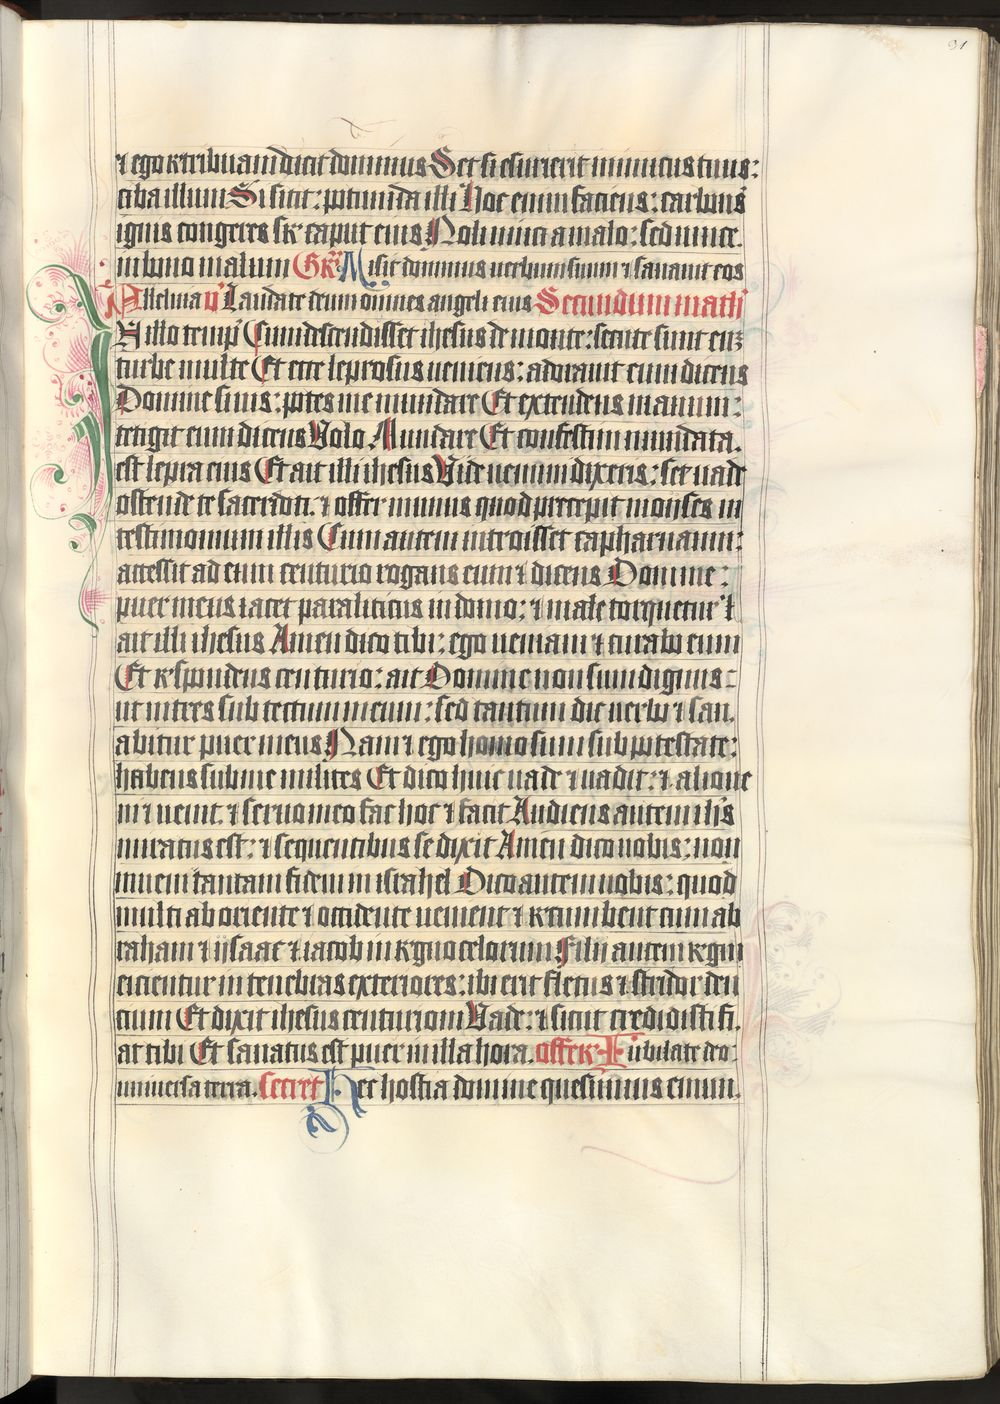 31
⁊ ego retribuam dicit dominus Set si esurierit inimicus tuus:
ciba illum Si sitit: potum da illi Hoc enim faciens: carbones
ignis congeres sup caput eius Noli vinci a malo: sed vince
in bono malum Gr̄ Misit dominus verbum suum ⁊ sanauit eos
Alleluia v̄ Laudate deum omnes angeli eius Secundum math̄
In illo temp̄ Cum descendisset ihesus de monte: secute sunt eum
turbe multe Et ecce leprosus ueniens: adorauit eum dicens
Domine si uis: potes me mundare Et extendens manum:
tetigit eum dicens Volo. Mundare Et confestim mundata.
est lepra eius Et ait illi ihesus Vide nemini dixeris: set uade
ostende te sacerdoti. ⁊ offer munus quod precepit moises in
testimonium illis Cum autem introisset capharnaum:
accessit ad eum centurio rogans eum ⁊ dicens Domine:
puer meus iacet paraliticus in domo: ⁊ male torquetur ⁊
ait illi ihesus Amen dico tibi: ego ueniam ⁊ curabo eum
Et respondens centurio: ait Domine non sum dignus:
ut intres sub tectum meum: sed tantum dic uerbo ⁊ san.
abitur puer meus Nam ⁊ ego homo sum sub potestate:
habens sub me milites Et dico huic uade ⁊ uadit: ⁊ alio ue
ni ⁊ uenit. ⁊ seruo meo fac hoc ⁊ facit Audiens autem ih̄s
miratus est: ⁊ sequentibus se dixit Amen dico uobis: non
inueni tantam fidem in israhel Dico autem uobis: quod
multi ab oriente ⁊ occidente uenient ⁊ recumbent cum ab
raham ⁊ ysaac ⁊ iacob in regno celorum Filij autem regni
eicientur in tenebras exteriores: ibi erit fletus ⁊ stridor den
cium Et dixit ihesus centurioni Vade: ⁊ sicut credidisti fi.
at tibi Et sanatus est puer in illa hora. offer. Iubilate deo
uniuersa terra. Secret Hec hostia domine quesumus emun.